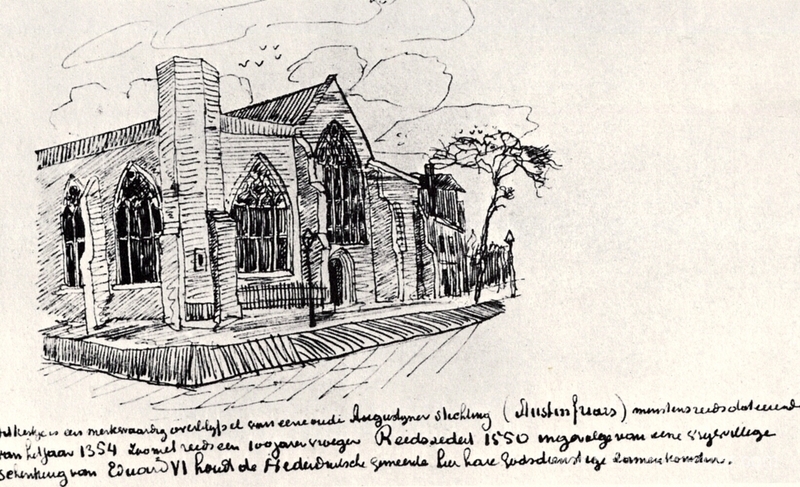 dit kerkje is een merkwaardig overblijfsel van eene oude Augustyner stichting (Austin friars) minstens reeds dateerend
van het jaar 1354 zoo niet reeds een 100 jaar vroeger Reeds sedert 1550 ingevolge van eene vrijwillige
schenking van Eduard VI houdt de Nederduitsche gemeente hier hare Godsdienstige zamenkomsten.